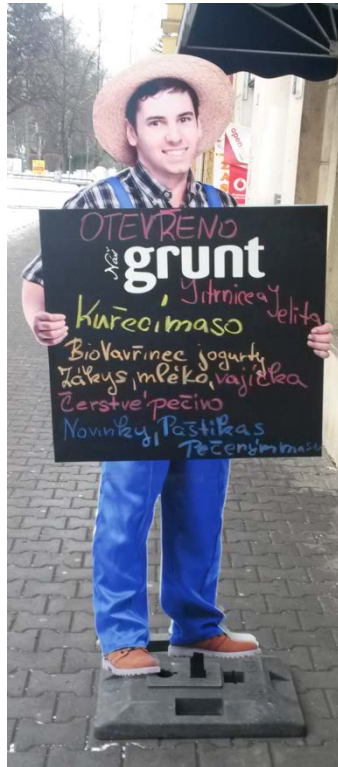 OTEVŘENO
Náš grunt
Jitrnice a Jelita
Kuřecí maso
BioVavřinec jogurty
Zákys, mléko, vajíčka
Čerstvé pečivo
Novinky, Paštika s
Pečeným masem
open